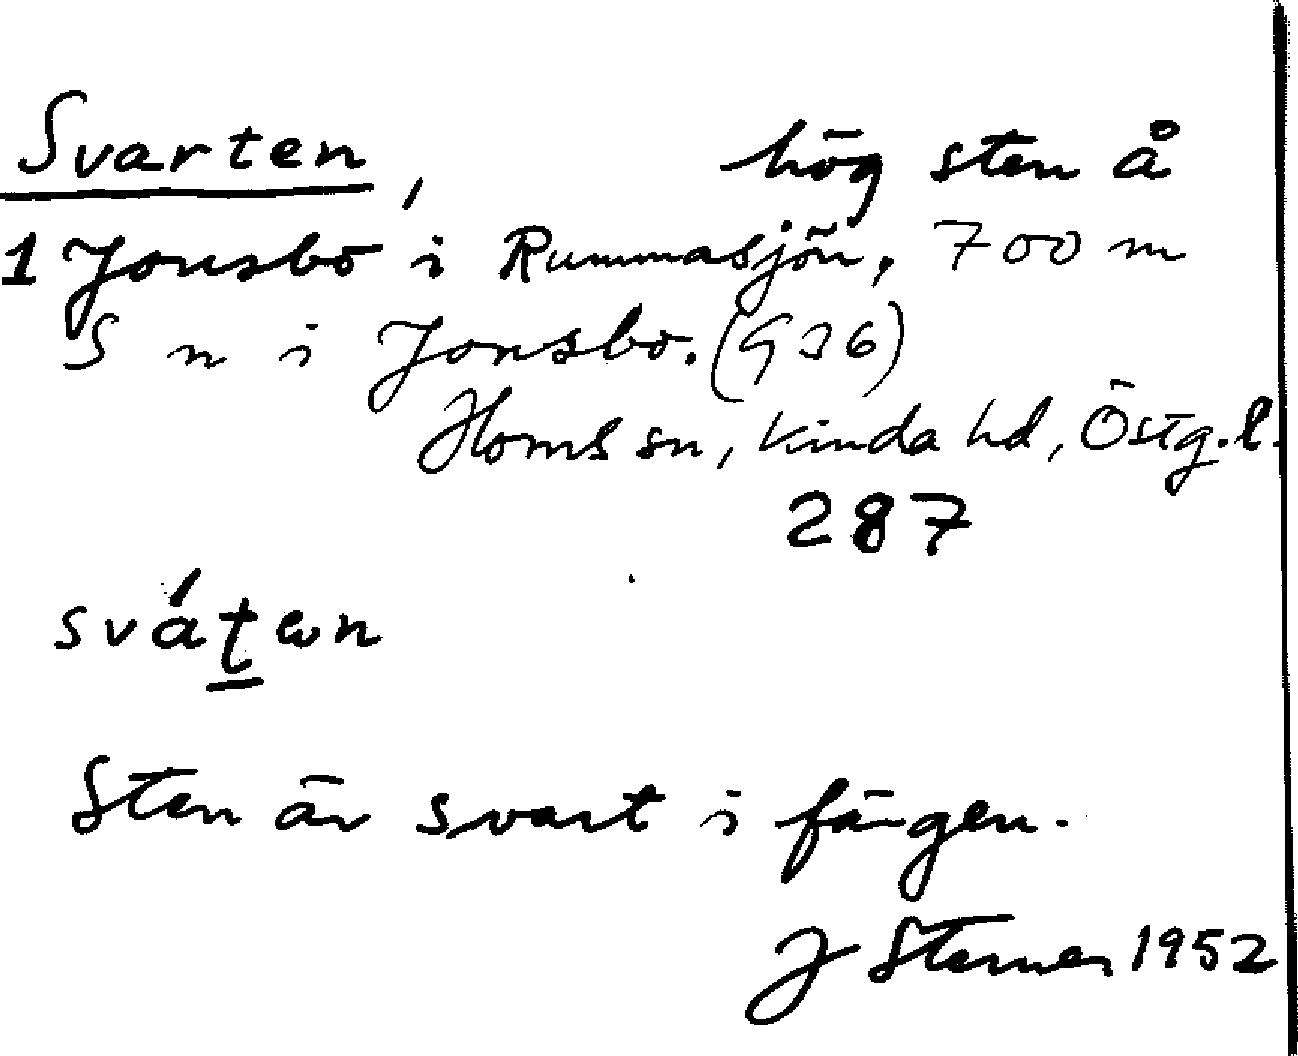 Svarten, hög sten å
1 Jonsbo i Rummasjön, 700 m
S n i Jonsbo. (936)
Horns sn, Kinda hd, Östg. l.
287
sváṯən
Sten är svart i färgen.
J Sterner 1952